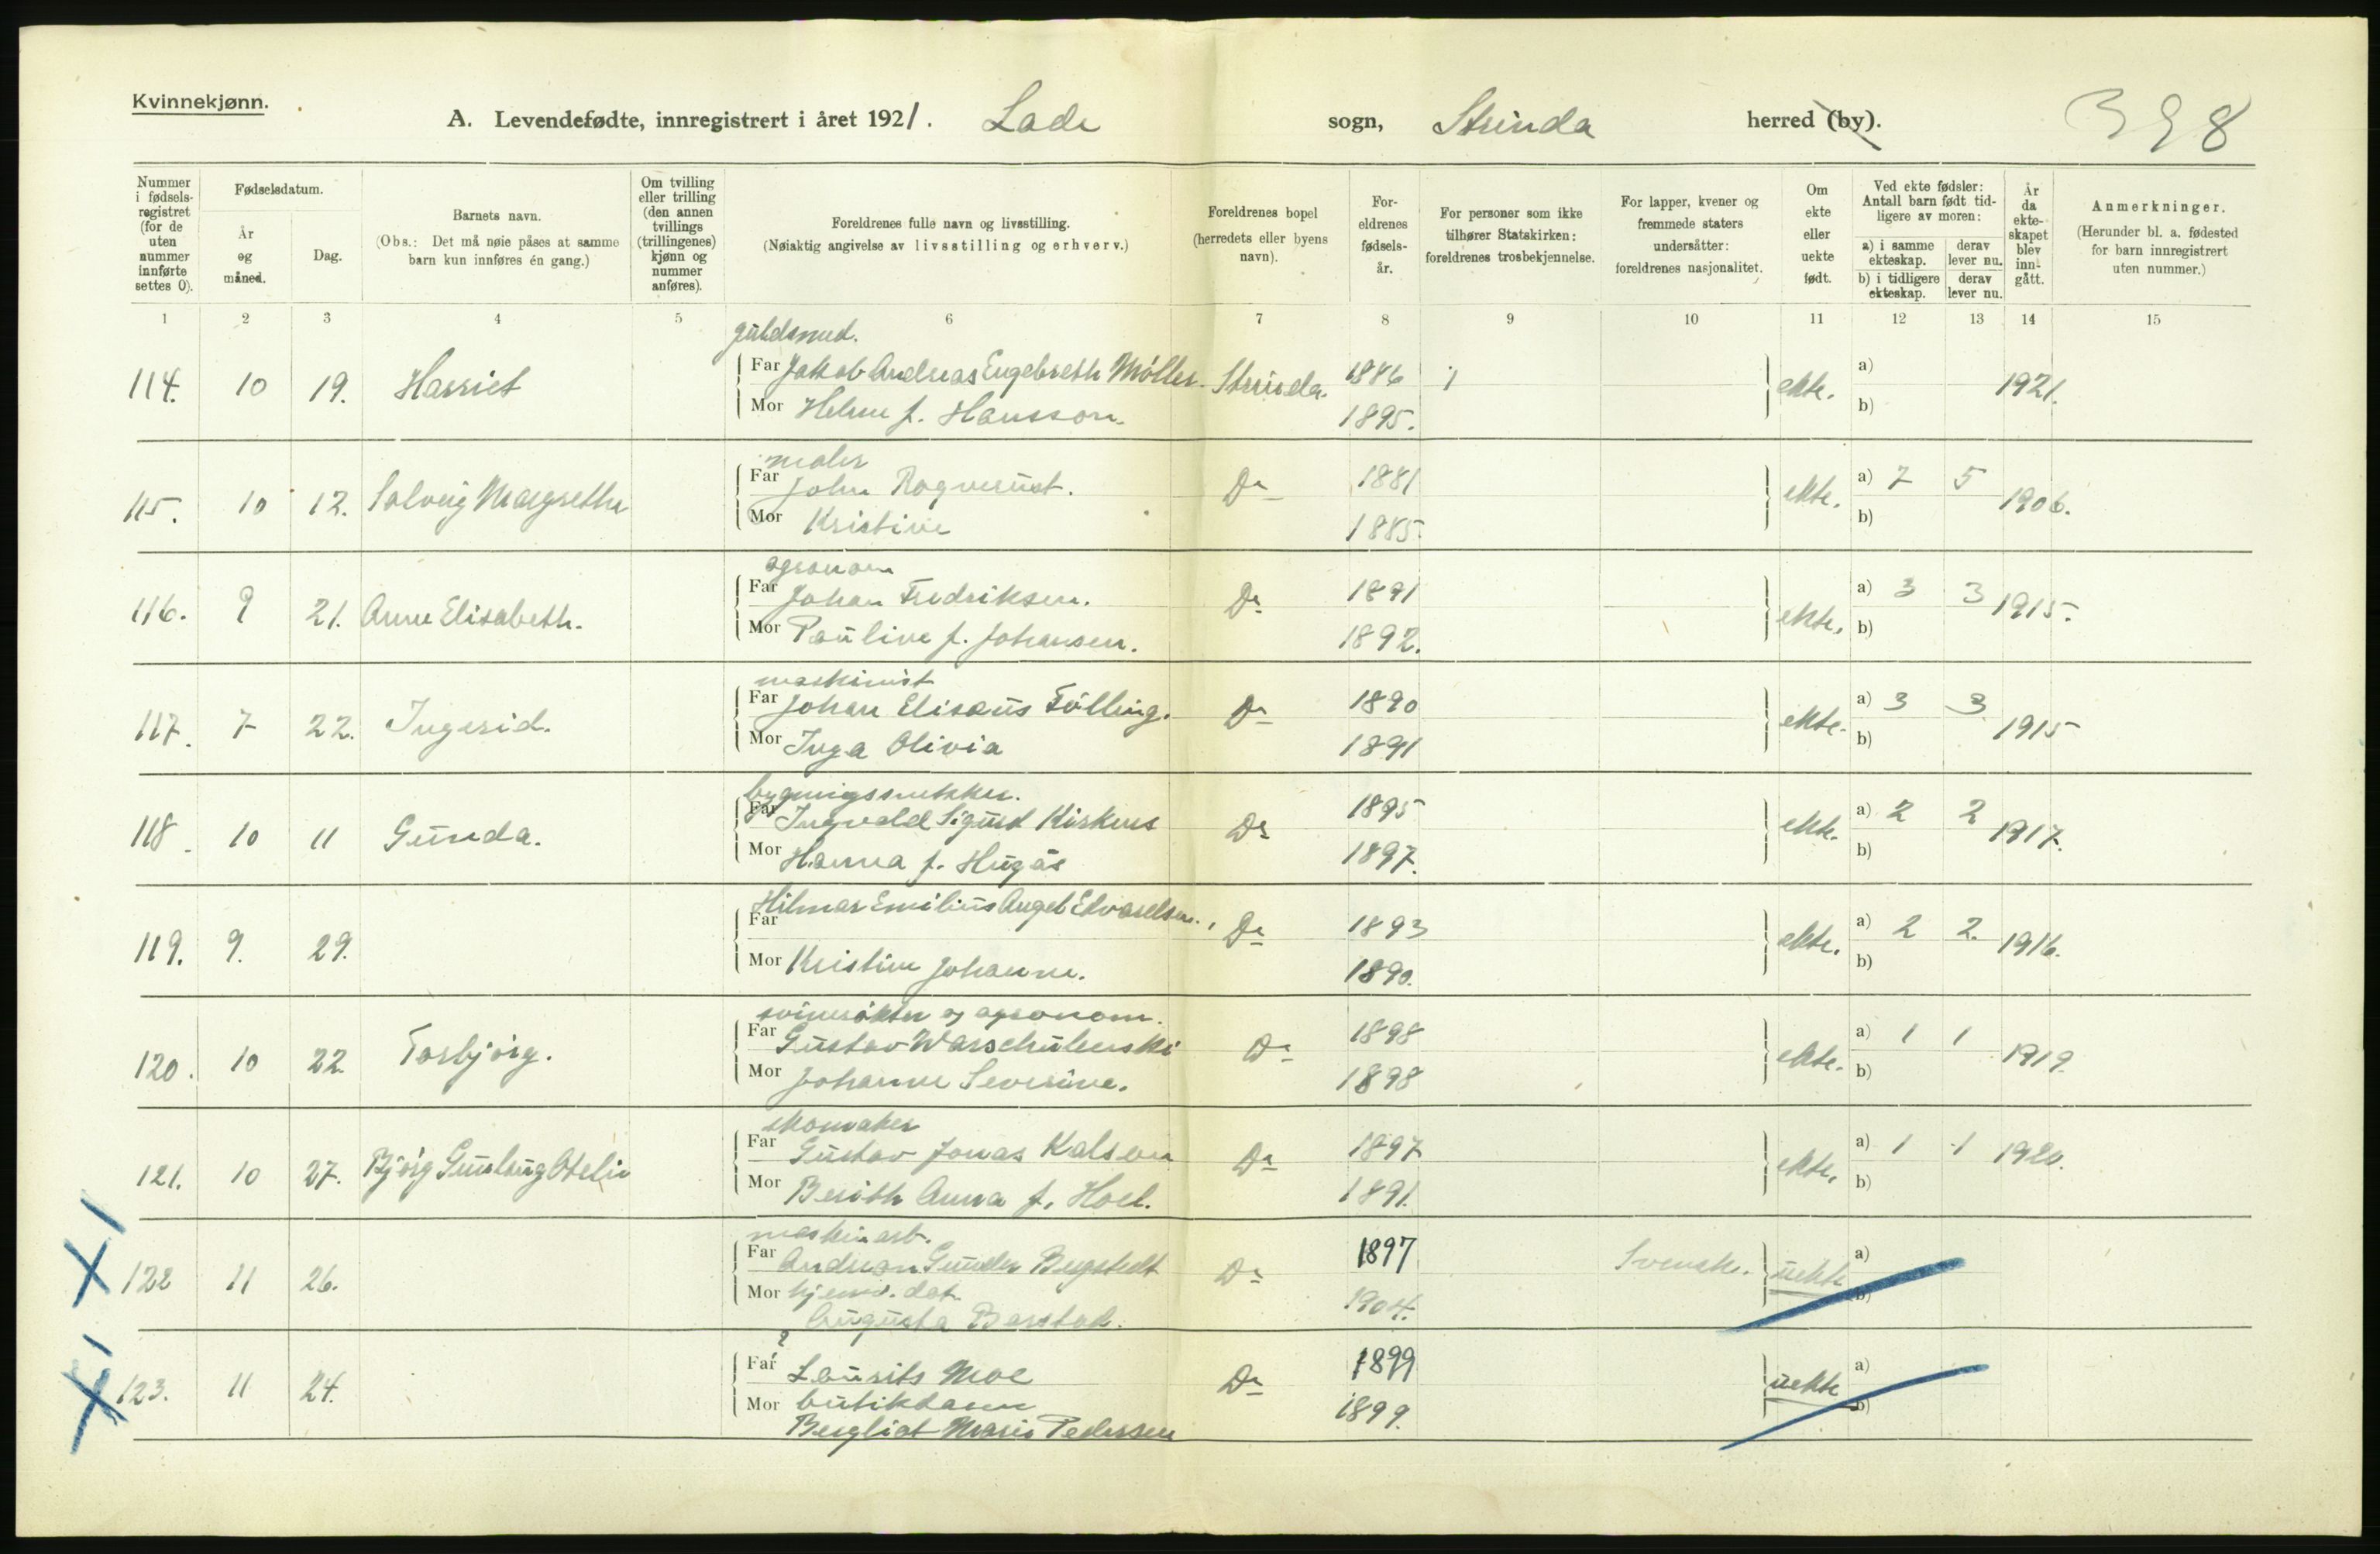 Kvinnekjønn.
A. Levendefødte, innregistrert i året 1921. Lade sogn, Strinda herred (by). 398
Nummer i fødsels-registret (for de uten nummer innførte settes 0).
Fødselsdatum.
År og måned.
Dag.
Barnets navn.
(Obs.: Det må nøie påses at samme barn kun innføres én gang.)
Om tvilling eller trilling (den annen tvillings (trillingenes) kjønn og nummer anføres).
Foreldrenes fulle navn og livsstilling.
(Nøiaktig angivelse av livsstilling og erhverv.)
Foreldrenes bopel (herredets eller byens navn).
For-eldrenes fødsels-år.
For personer som ikke tilhører Statskirken: foreldrenes trosbekjennelse.
For lapper, kvener og fremmede staters undersåtter: foreldrenes nasjonalitet.
Om ekte eller uekte født.
Ved ekte fødsler: Antall barn født tid-ligere av moren:
a) i samme ekteskap. derav lever nu.
b) i tidligere ekteskap. derav lever nu.
År da ekte-skapet blev inn-gått.
Anmerkninger.
(Herunder bl. a. fødested for barn innregistrert uten nummer.)
1 2 3 4 5 6 7 8 9 10 11 12 13 14 15
guldsmed.
114. 10 19. Harriet Far Jakob Andreas Engebreth Møller. Strinda. 1886 1 ekte. a) 1921.
Mor Helene f. Hansson. 1895. b)
maler
115. 10 12. Solveig Margrethe Far John Rogverust. Do 1881 ekte. a) 7 5 1906.
Mor Kristine 1885. b)
agronom
116. 9 21. Anne Elisabeth. Far Johan Fredriksen. Do 1891 ekte. a) 3 3 1915.
Mor Pauline f. Johansen. 1892. b)
maskinist
117. 7 22. Ingerid. Far Johan Elisæus Følling. Do 1890 ekte. a) 3 3 1915
Mor Inga Olivia 1891 b)
bygningssnekker.
118. 10 11 Gunda. Far Ingvald Sigurd Kirknes Do 1895 ekte. a) 2 2 1917.
Mor Hanna f. Hugås 1897. b)
Hilmar Emilius Angel Edvardsen.
119. 9. 29. Far Do 1893 ekte. a) 2 2. 1916.
Mor Kristine Johanne. 1890. b)
svinerøkter og agronom.
120. 10 22. Torbjørg. Far Gustav Warschulewski Do 1898 ekte. a) 1 1 1919.
Mor Johanne Severine. 1898 b)
skomaker
121. 10 27. Bjørg Gunlaug Otelie Far Gustav Jonas Kalson Do 1897 ekte. a) 1 1 1920.
Mor Berith Anna f. Hoel. 1891. b)
maskinarb.
122 11 26. Far Andreas Gunder Bergstedt Do 1897 Svensk. uekte a)
Mor hjemv. dat. 1904. b)
Augusta Barstad.
?
123. 11 24. Far Laurits Moe Do 1899 uekte a)
Mor butikdame 1899. b)
Bergliot Marie Pedersen